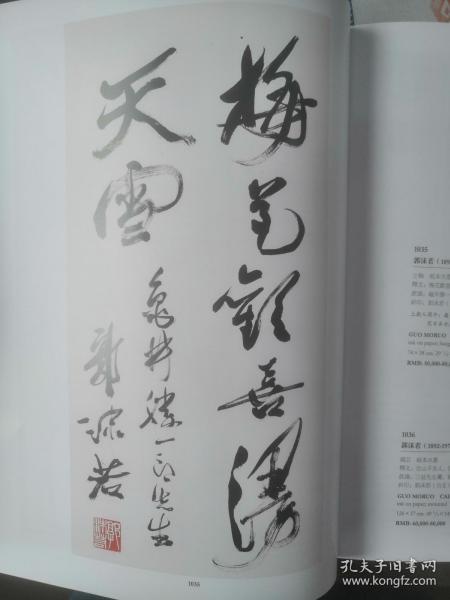 梅花歡喜漫
天雪
龜井勝一郎先生
郭沫若
1035
1035
郭沫若（189
GUO MORUO
ink on paper; hang
RMB:
1036
郭沫若（1892-197
GUO MORUO CAL
ink on paper; mounted
RMB: 60,000-80,000
孔夫子旧书网
www.kongfz.com